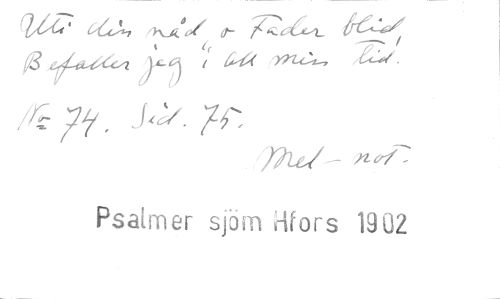 Uti din nåd, o Fader blid,
Befaller jag i all min tid.
No 74. Sid. 75.
Mel - not.
Psalmer sjöm Hfors 1902